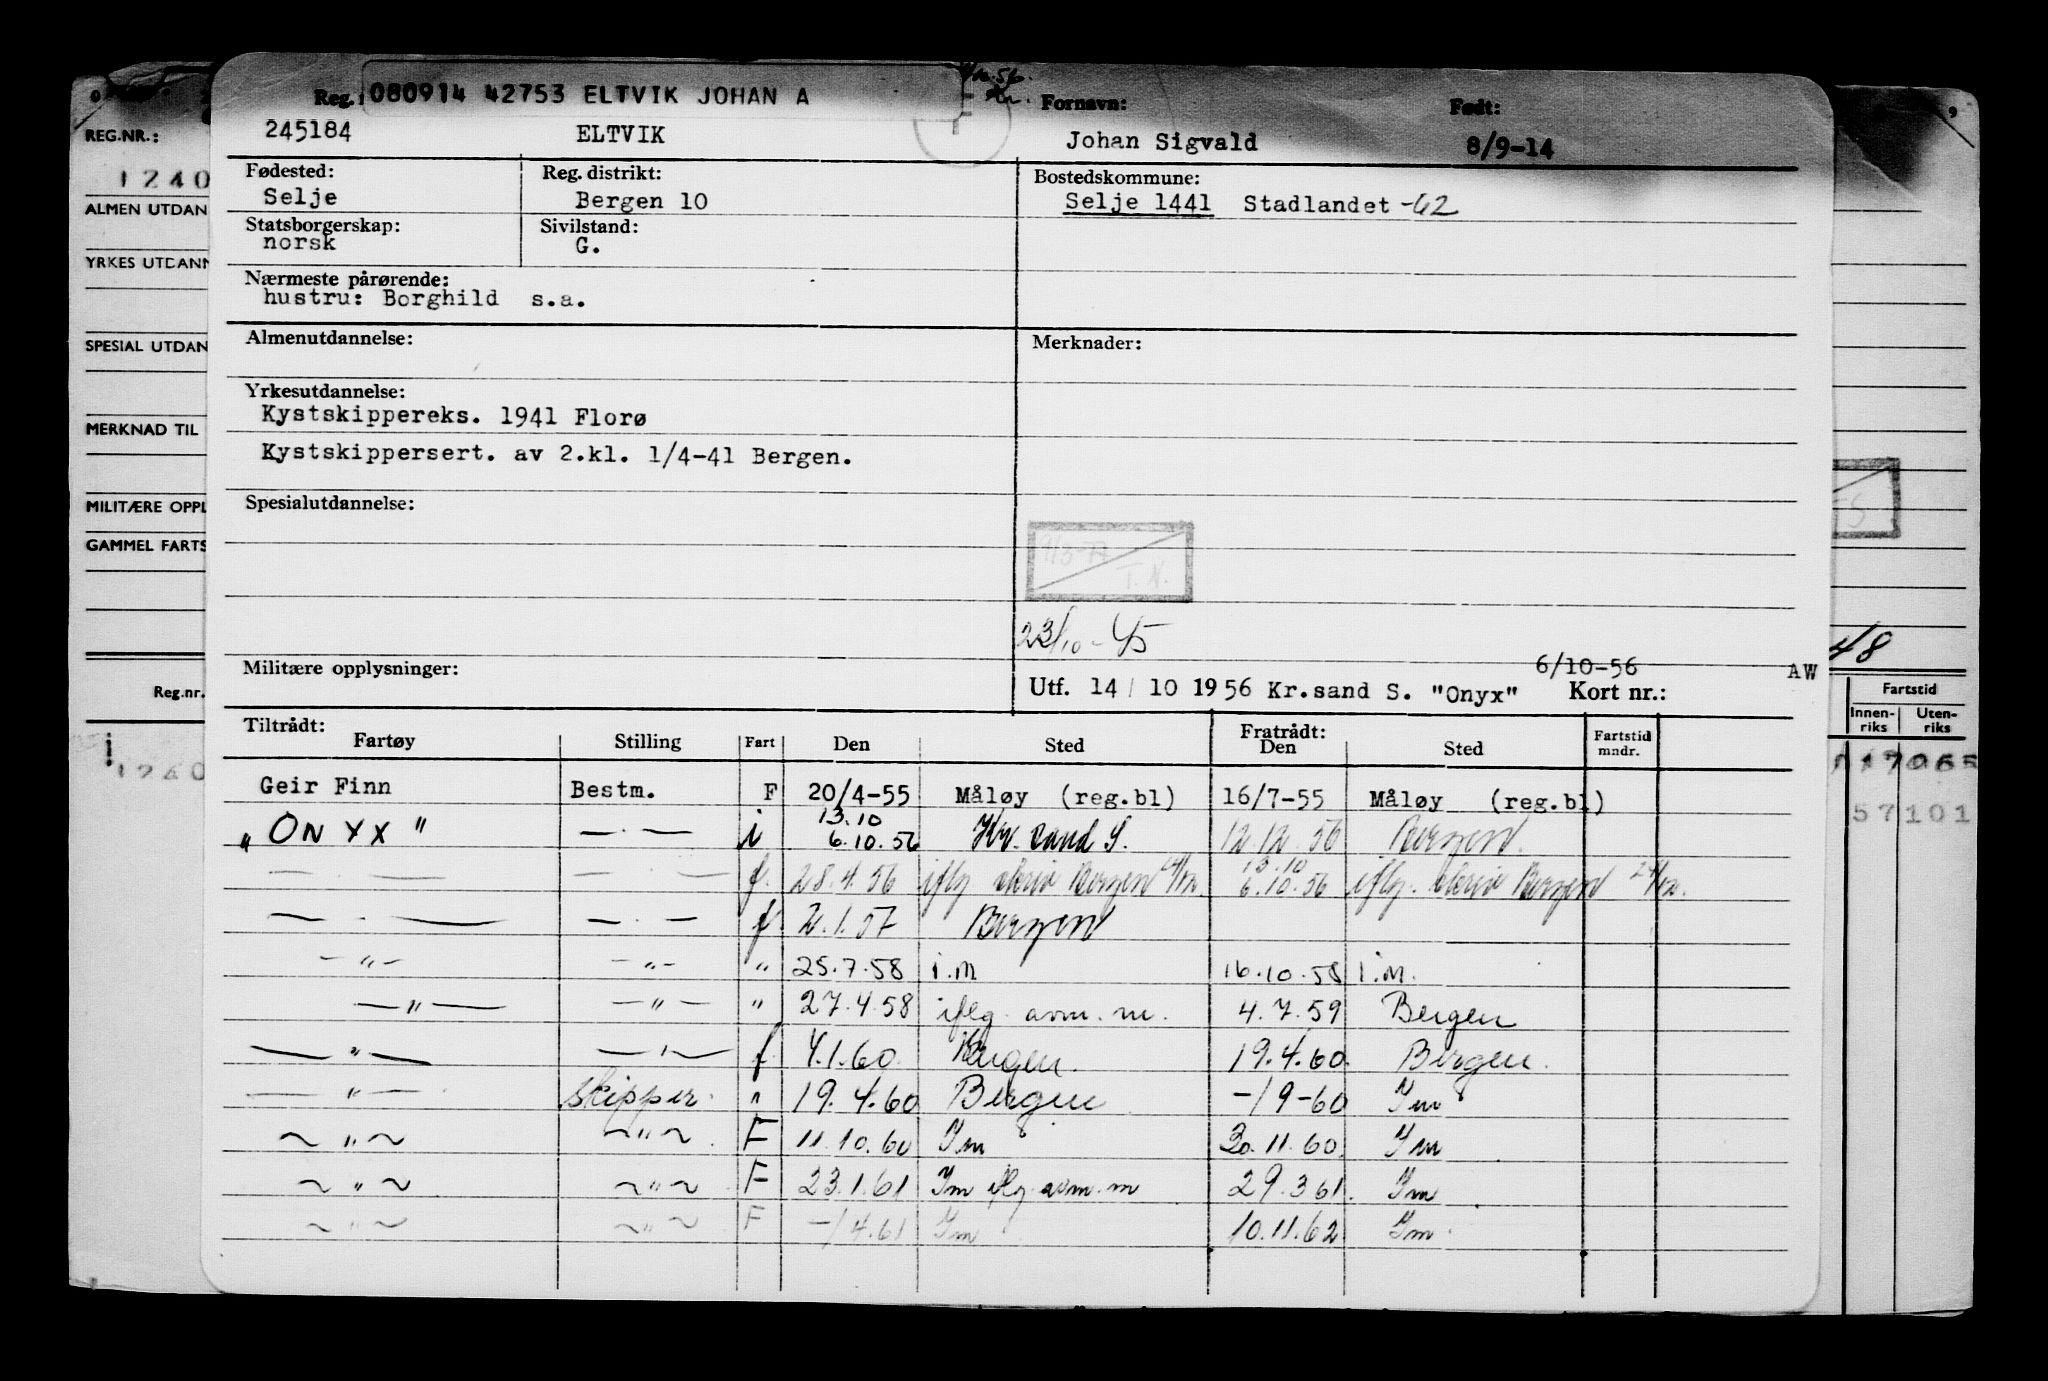 080914 42753 ELTVIK JOHAN A
Reg. Fornavn: Født:
245184 ELTVIK Johan Sigvald 8/9-14
REG.NR.:
1240
Fødested: Reg. distrikt: Bostedskommune:
Selje Bergen 10 Selje 1441 Stadlandet -62
ALMEN UTDAN
Statsborgerskap: Sivilstand:
norsk G.
YRKES UTDANN
Nærmeste pårørende:
hustru: Borghild s.a.
SPESIAL UTDAN
Almenutdannelse: Merknader:
Yrkesutdannelse:
Kystskippereks. 1941 Florø
MERKNAD TIL
Kystskippersert. av 2.kl. 1/4-41 Bergen.
MILITÆRE OPPL
Spesialutdannelse:
GAMMEL FARTS
9/3-77
T.N.
23/10-45
48
Militære opplysninger: 6/10-56 AW
Utf. 14/10 1956 Kr.sand S. "Onyx" Kort nr.:
Reg.nr. Fartstid
Innen-riks Uten-riks
Tiltrådt: Fratrådt:
Fartøy Stilling Fart Den Sted Den Sted Fartstid mndr.
Geir Finn Bestm. F 20/4-55 Måløy (reg.bl) 16/7-55 Måløy (reg.bl)
13.10
"ONYX" — . — i 6.10.56 Kr. sand S. 12.12.56 Bergen.
13.10
— . — — . — f. 28.4.56 iflg skriv Bergen 6.10.56 iflg. skriv Bergen
— . — — . — f 2.1.57 Bergen
— " — — " — " 25.7.58 i.m 16.10.58 i.m.
— " — — " — " 27.4.58 iflg. avm. m. 4.7.59 Bergen
— " — — " — f 4.1.60 Bergen. 19.4.60 Bergen.
— " — skipper " 19.4.60 Bergen -/9-60 Im
~ " ~ ~ " ~ F 11.10.60 Im 30.11.60 Im
~ " ~ ~ " ~ F 23.1.61 Im iflg. avm. m 29.3.61. Im
~ " ~ ~ " ~ F -/4.61 Im 10.11.62 Im
57101